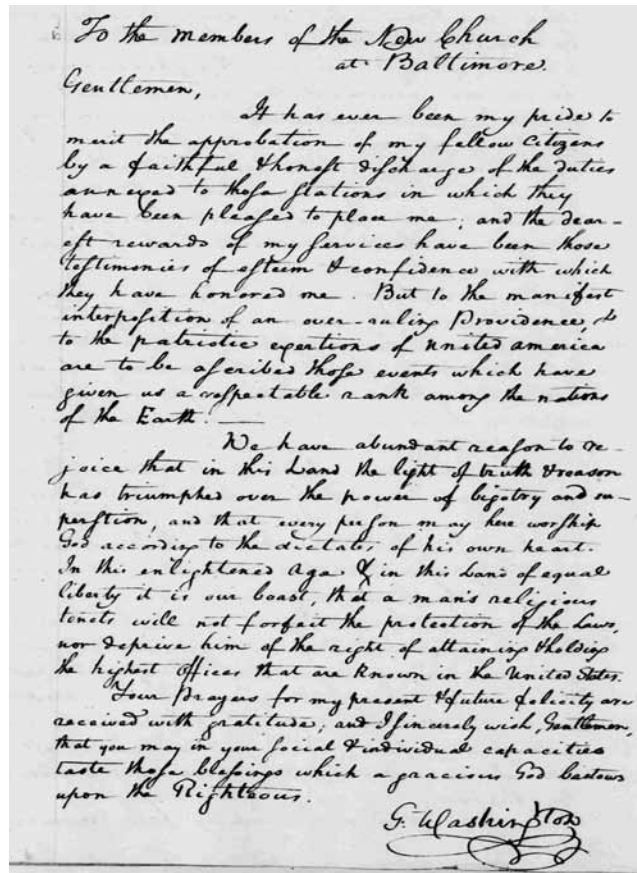 To the members of the New Church
at Baltimore.
Gentlemen,
It has ever been my pride to
merit the approbation of my fellow citizens
by a faithful & honest discharge of the duties
annexed to those stations in which they
have been pleased to place me; and the dear-
est rewards of my services have been those
testimonies of esteem & confidence with which
they have honored me. But to the manifest
interposition of an over-ruling Providence, &
to the patriotic exertions of united america
are to be ascribed those events which have
given us a respectable rank among the nations
of the Earth. —
We have abundant reason to re-
joice that in this Land the light of truth & reason
has triumphed over the power of bigotry and su-
perstion, and that every person may here worship
God according to the dictates of his own heart.
In this enlightened Age & in this Land of equal
liberty it is our boast, that a man's religious
tenets will not forfeit the protection of the Laws,
nor deprive him of the right of attaining & holding
the highest Offices that are known in the United States.
Your Prayers for my present & future felicity are
received with gratitude; and I sincerely wish, Gentlemen,
that you may in your social & individual capacities
taste those blessings which a gracious God bestows
upon the Righteous.
G. Washington